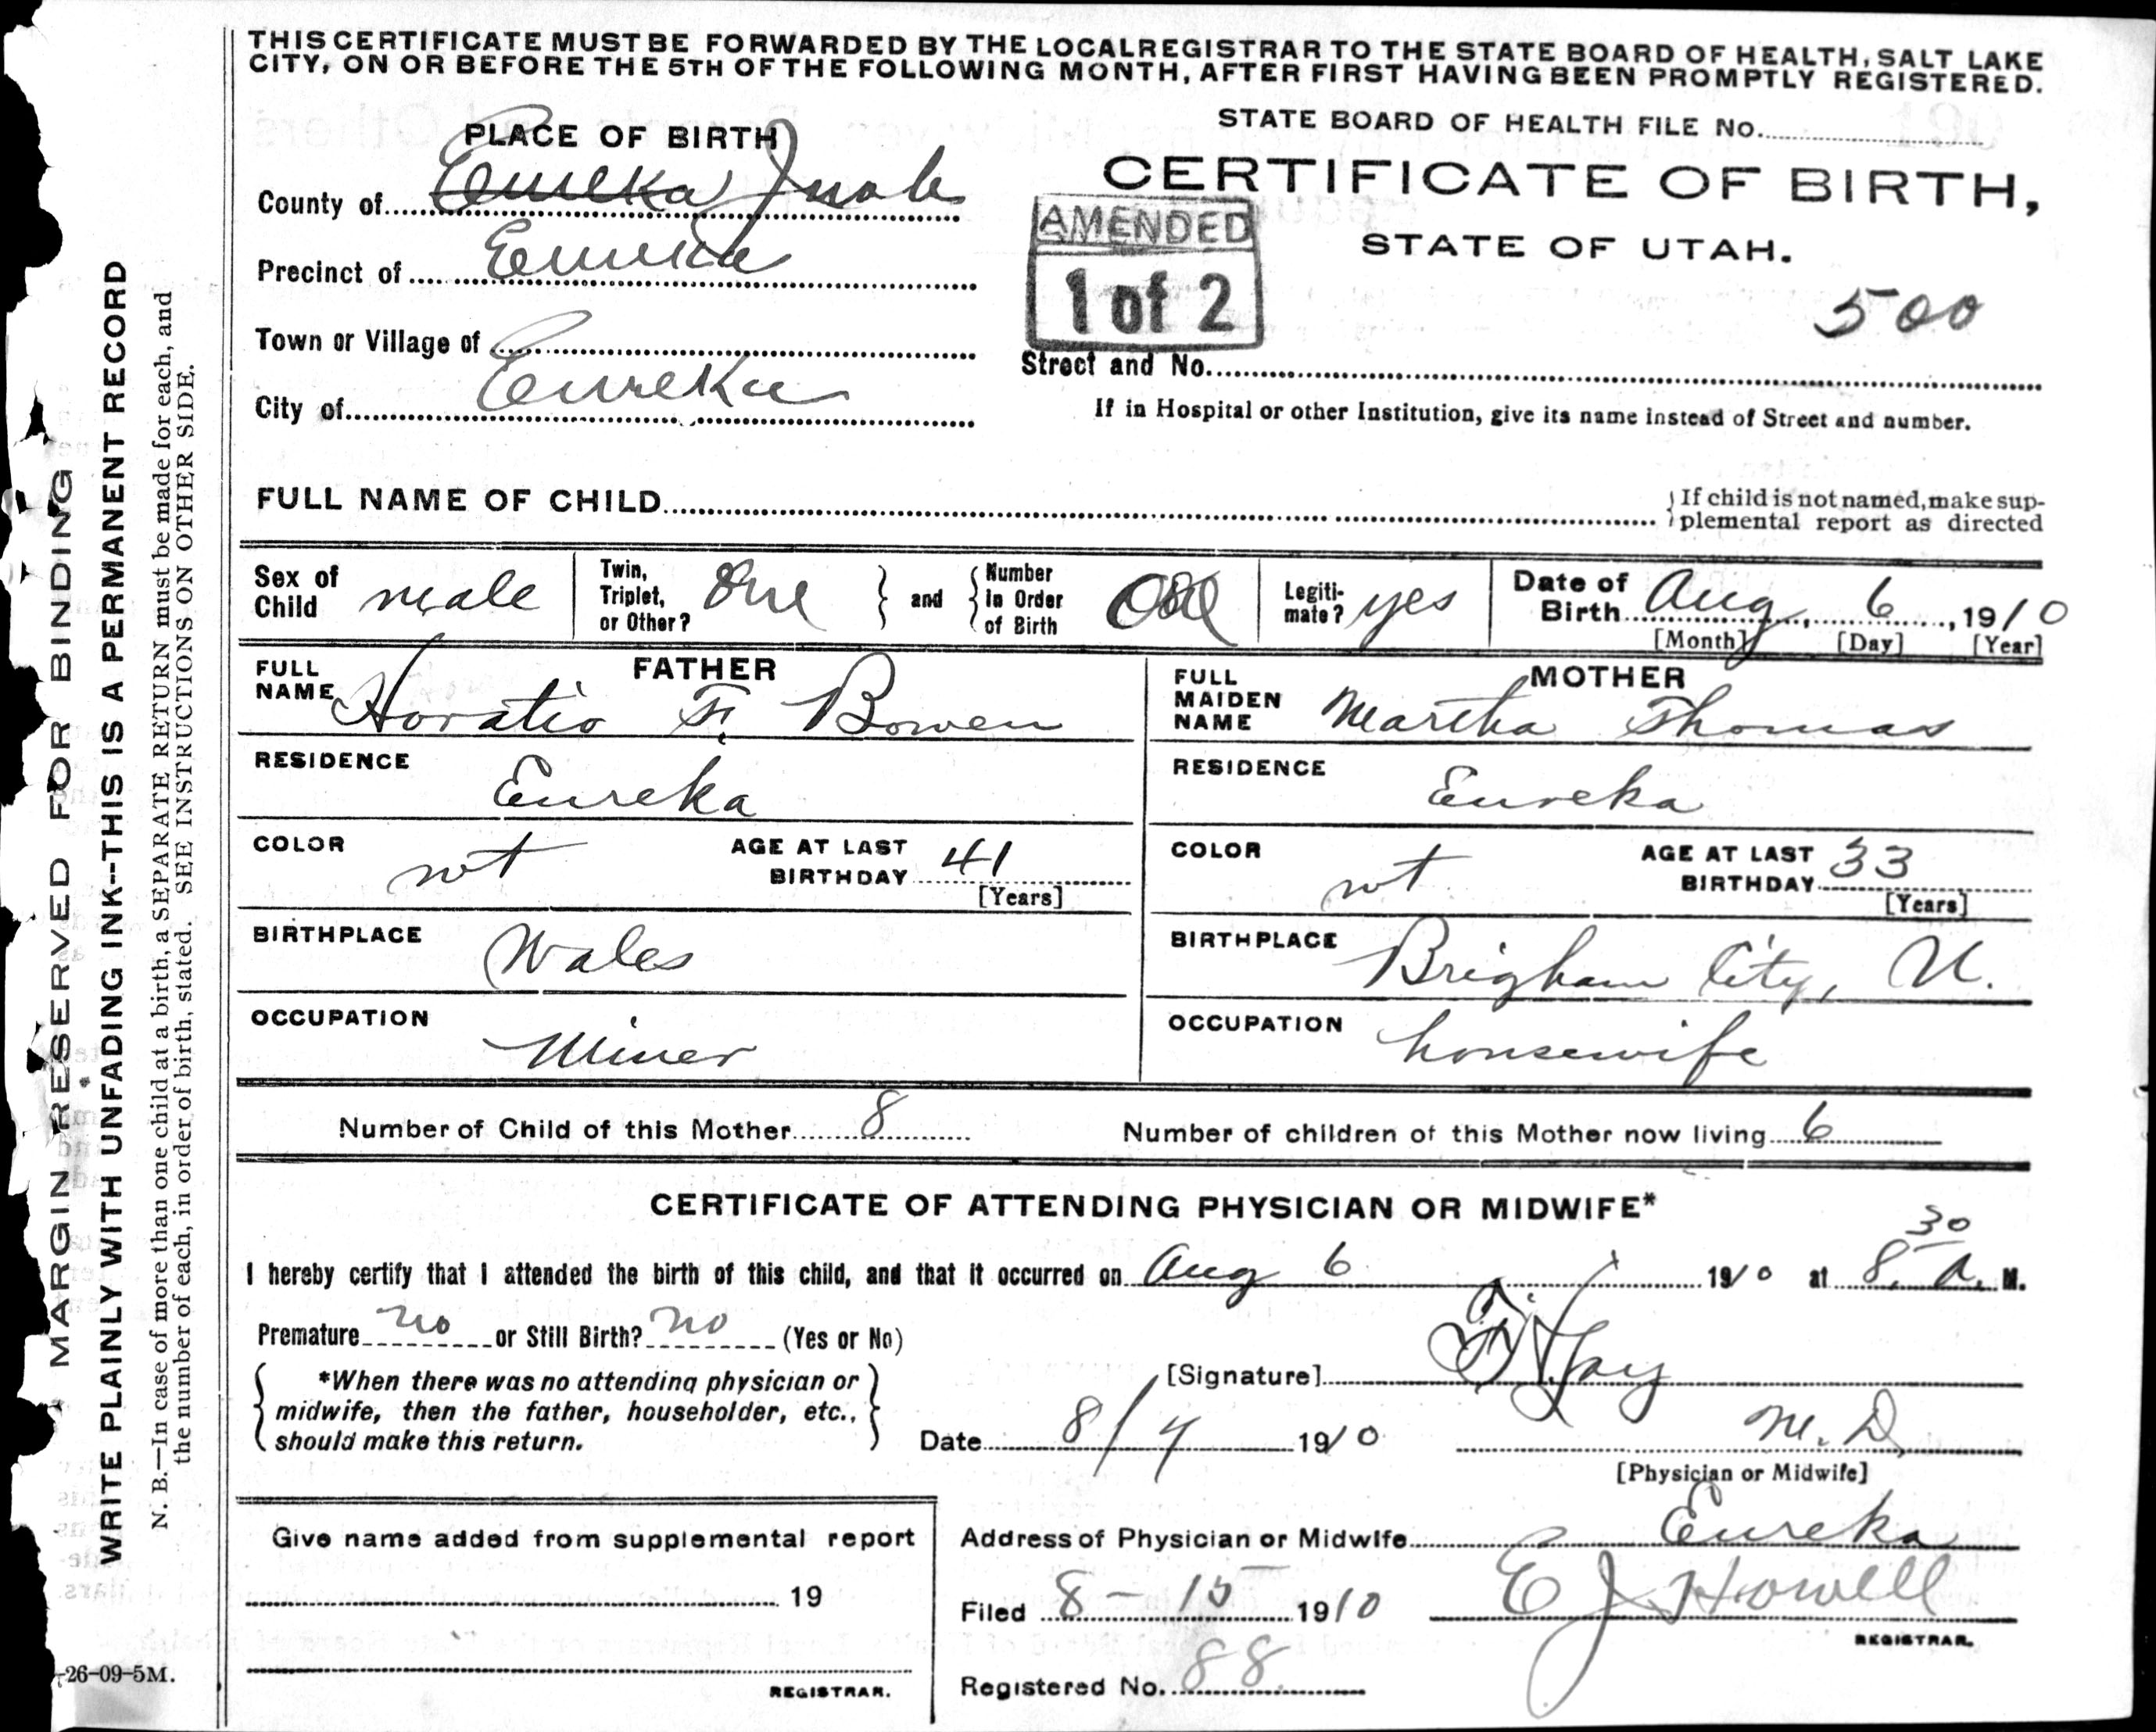 THIS CERTIFICATE MUST BE FORWARDED BY THE LOCAL REGISTRAR TO THE STATE BOARD OF HEALTH, SALT LAKE
CITY, ON OR BEFORE THE 5TH OF THE FOLLOWING MONTH, AFTER FIRST HAVING BEEN PROMPTLY REGISTERED.
STATE BOARD OF HEALTH FILE No.
PLACE OF BIRTH
CERTIFICATE OF BIRTH,
STATE OF UTAH.
AMENDED
1 of 2
500
County of Eureka Juab
Precinct of Eureka
Town or Village of
City of Eureka
Street and No.
If in Hospital or other Institution, give its name instead of Street and number.
FULL NAME OF CHILD
If child is not named, make sup-
plemental report as directed
Sex of Child male
Twin, Triplet, or Other? One
and
Number in Order of Birth
Legiti-mate? yes
Date of Birth Aug, 6, 1910
[Month] [Day] [Year]
FATHER
FULL NAME Horatio F. Bowen
RESIDENCE
Eureka
COLOR wt AGE AT LAST BIRTHDAY 41
[Years]
BIRTHPLACE Wales
OCCUPATION
Miner
MOTHER
FULL MAIDEN NAME Martha Thomas
RESIDENCE
Eureka
COLOR wt AGE AT LAST BIRTHDAY 33
[Years]
BIRTHPLACE Brigham City, U.
OCCUPATION housewife
Number of Child of this Mother 8
Number of children of this Mother now living 6
CERTIFICATE OF ATTENDING PHYSICIAN OR MIDWIFE*
I hereby certify that I attended the birth of this child, and that it occurred on Aug 6 1910 at 8.30 A. M.
Premature no or Still Birth? no (Yes or No)
*When there was no attending physician or
midwife, then the father, householder, etc.,
should make this return.
[Signature]
Date 8/7 1910
M. D.
[Physician or Midwife]
Address of Physician or Midwife Eureka
Filed 8-15 1910 E J Howell
REGISTRAR.
Registered No. 88
Give name added from supplemental report
19
REGISTRAR.
MARGIN RESERVED FOR BINDING
WRITE PLAINLY WITH UNFADING INK--THIS IS A PERMANENT RECORD
N. B.—In case of more than one child at a birth, a SEPARATE RETURN must be made for each, and
the number of each, in order of birth, stated. SEE INSTRUCTIONS ON OTHER SIDE.
-26-09-5M.